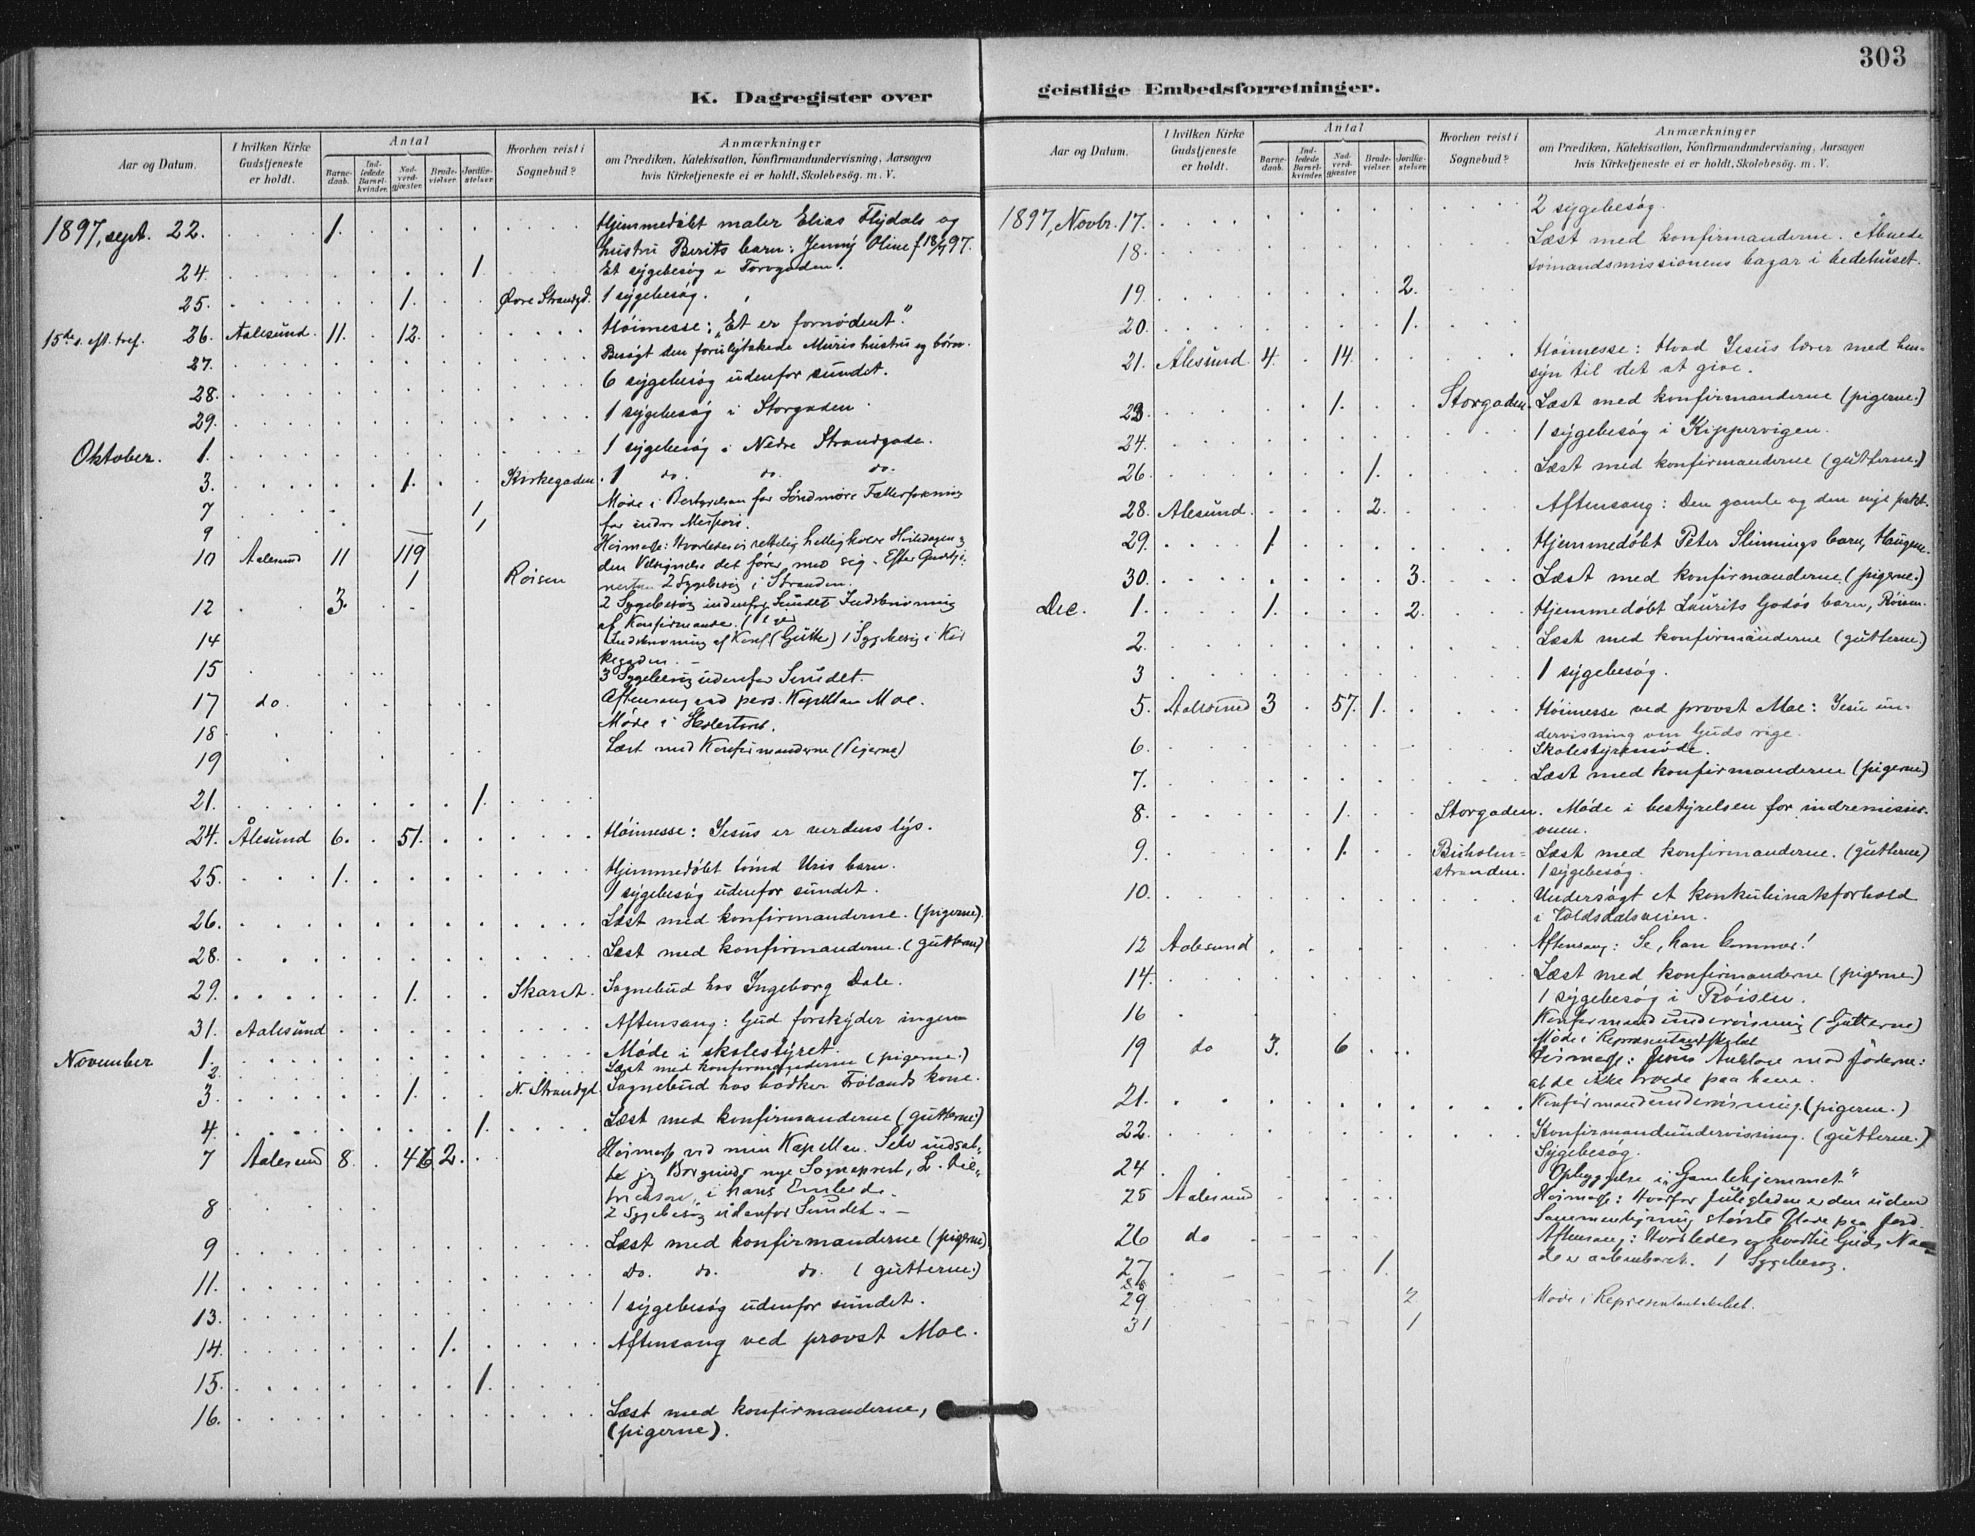 303
K. Dagregister over
geistlige Embedsforretninger.
Aar og Datum.
I hvilken Kirke Gudstjeneste er holdt.
Antal
Barne-daab.
Ind-ledede Barsel-kvinder.
Nad-verd-gjæster.
Brude-vielser.
Jordfæ-stelser.
Hvorhen reist i Sognebud?
Anmærkninger
om Prædiken, Katekisation, Konfirmandundervisning, Aarsagen
hvis Kirketjeneste ei er holdt, Skolebesøg. m. V.
1897, sept. 22. 1. Hjemmedøbt maler Elias Flydals og
hustru Berits barn: Jenny Oline f 18/9 97.
24. 1. Et sygebesøg i Torvgaden.
25. 1. Øvre Strandgd. 1 sygebesøg.
15de s. eft. tref. 26. Aalesund. 11. 12. Høimesse: "Et er fornødent."
27. Besøgt den forulykkede Muris hustru og børn.
28. 6 sygebesøg udenfor sundet.
29. 1 sygebesøg i Storgaden.
Oktober. 1. 1 sygebesøg i Nedre Strandgade.
3. 1. Kirkegaden. 1 do. do. do.
7 1 Møde i Bestyrelsen for Søndmøre Fællesforening
9 1 for indre Mission.
10 Aalesund 11 119 Høimesse: Hvorledes vi rettelig helligholde Hviledagen og
den Velsignelse det fører med sig. Efter Gudstje-
1 Røisen nesten 2 Sygebesøg i Stranden.
12 3. 2 Sygebesøg indenfor Sundet Indskrivning
af Konfirmander.
14 Indskrivning af Konf. (Gutte) 1 Sygebesøg i Kir
kegaden.
15 3 Sygebesøg udenfor Sundet.
17 do. Aftensang ved pers. Kapellan Moe.
18 Møde i
19 Læst med Konfirmanderne (Pigerne)
21. 1.
24. Ålesund 6. 51. Høimesse: Jesus er verdens lys.
25. 1. Hjemmedøbt tømd Uris barn.
1 sygebesøg udenfor sundet.
26. Læst med konfirmanderne. (pigerne).
28. Læst med konfirmanderne. (gutterne)
29. 1. Skaret. Sognebud hos Ingeborg Dale.
31. Aalesund Aftensang: Gud forskyder ingen
November 1. Møde i skolestyret.
2. Læst med konfirmanderne (pigerne.)
3. 1. N. Strandgd Sognebud hos bødker Frølands kone.
4. 1. Læst med konfirmanderne (gutterne.)
7 Aalesund 8. 46 2. Høimesse ved min Kapellan. Selv indsat-
te jeg Borgunds nye Sogneprest, L. Die-
trichson, i hans Embede.
8 2 Sygebesøg udenfor Sundet.
9 Læst med konfirmanderne (pigerne)
11. do. do. do. (gutterne.)
13. 1 sygebesøg udenfor sundet.
14. 1. Aftensang ved provst Moe.
15. 1.
16. Læst med konfirmanderne,
(pigerne).
Aar og Datum.
I hvilken Kirke Gudstjeneste er holdt.
Antal
Barne-daab.
Ind-ledede Barsel-kvinder.
Nad-verd-gjæster.
Brude-vielser.
Jordfæ-stelser.
Hvorhen reist i Sognebud?
Anmærkninger
om Prædiken, Katekisation, Konfirmandundervisning, Aarsagen
hvis Kirketjeneste ei er holdt, Skolebesøg. m. V.
1897, Novbr. 17. 2 sygebesøg.
18. Læst med konfirmanderne. Åbnede
sømandsmissionens bazar i bedehuset.
19. 2.
20. 1.
21. Ålesund 4. 14. Høimesse: Hvad Jesus lærer med hen-
syn til det at give.
23 1. Storgaden. Læst med konfirmanderne (pigerne.)
24. 1 sygebesøg i Kippervigen.
26. 1. Læst med konfirmanderne (gutterne.)
28. Alesund. 2. Aftensang: Den gamle og den nye pakt.
29. 1 Hjemmedøbt Peter Slinnings barn, Haugene.
30. 3. Læst med konfirmanderne (pigerne.)
Dec. 1. 1. 2. Hjemmedøbt Laurits Godøs barn, Røisen.
2. Læst med konfirmanderne (gutterne.)
3 1 sygebesøg.
5. Aalesund 3 57. 1. Høimesse ved provst Moe: Jesu un-
dervisning om Guds rige.
6. Skolestyremøde.
7. Læst med konfirmanderne (pigerne)
8. 1. Storgaden. Møde i bestyrelsen for indremissi-
onen.
9. 1. Bisholm= Læst med konfirmanderne. (gutterne)
stranden. 1 sygebesøg.
10. Undersøgt et konkubinatsforhold
i Voldsdalsveien.
12 Aalesund Aftensang: Se, han kommer!
14. Læst med konfirmanderne (pigerne.)
1 sygebesøg i Røisen.
16 Konfirmandundervisning (Gutterne)
Møde i Repræsentantskabet
19 do 3. 6 Høimesse: Jesus Anklage mod Jøderne:
at de ikke troede paa ham.
21. Konfirmandundervisning. (pigerne.)
22. Konfirmandundervisning. (gutterne.)
Sygebesøg.
24. Opbyggelse i "Gamlehjemmet"
25 Aalesund Høimesse: Hvorfor Juleglæden er den uden
Sammenligning største Glæde paa Jord.
26 do Aftensang: Hvorledes og hvortil Guds Naa-
de er aabenbaret. 1 Sygebesøg.
27 1.
28
29 2 Møde i Repræsentantskabet.
31 1